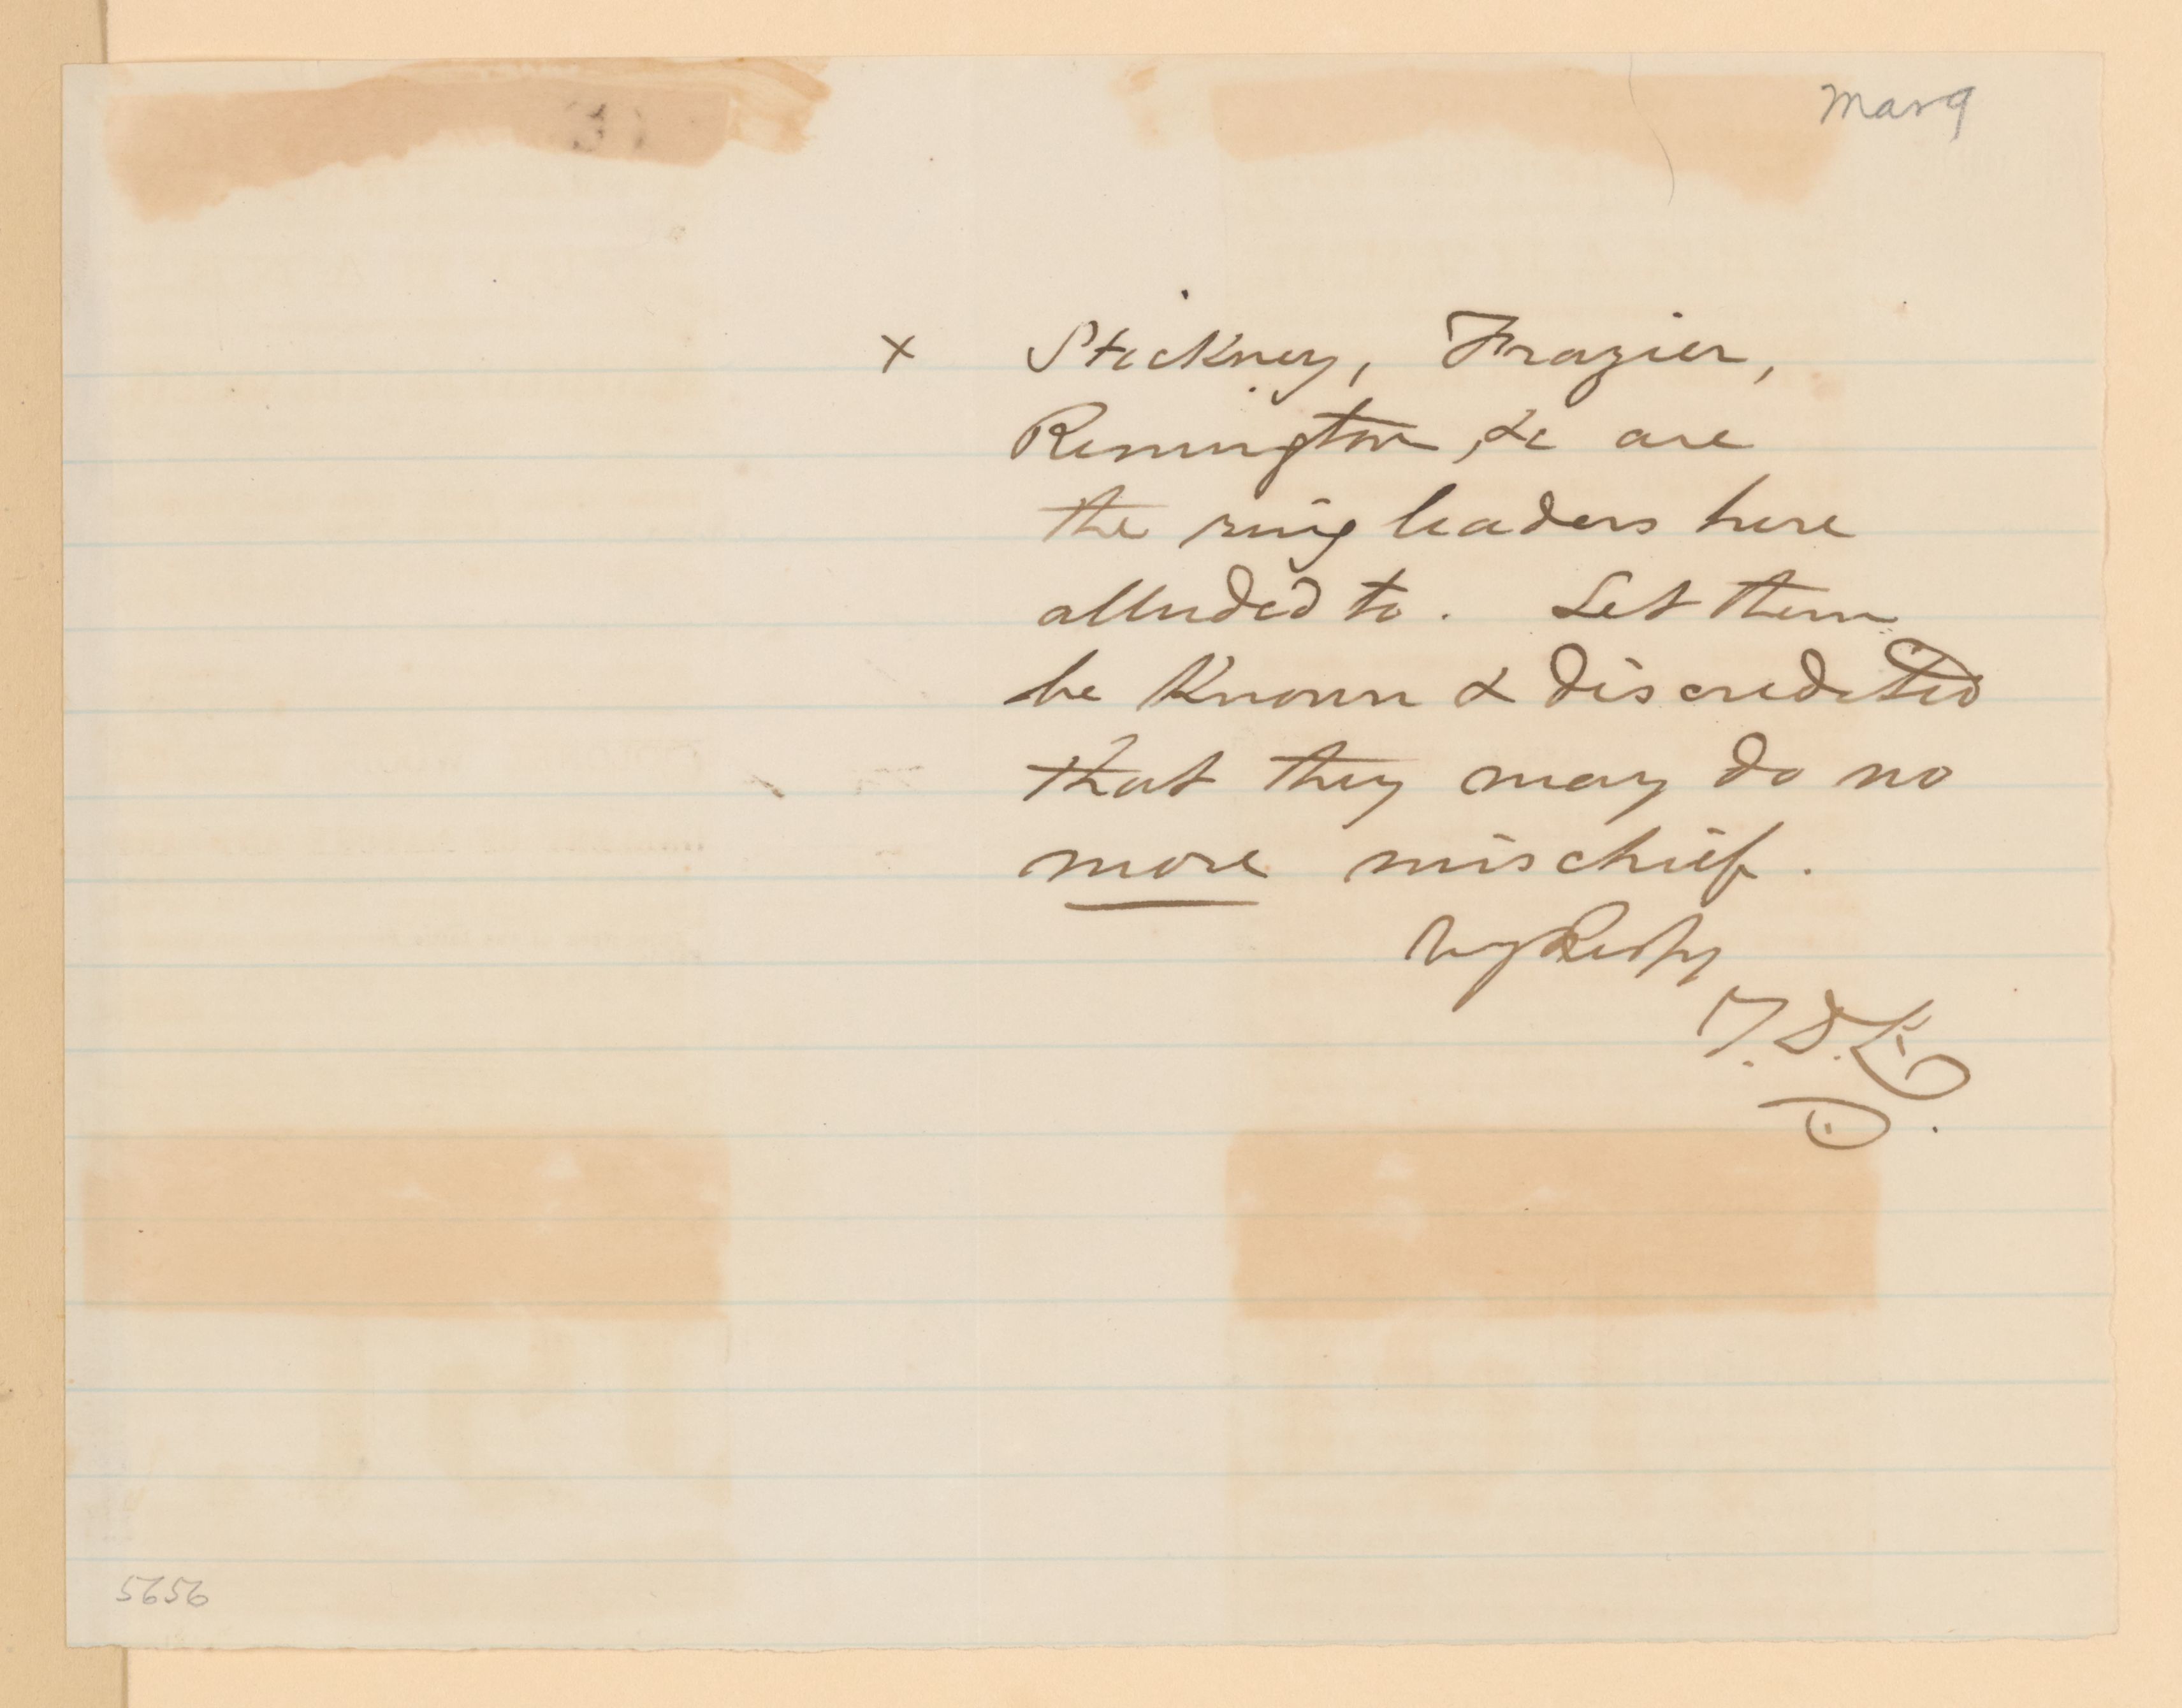 Mar 9
x Stickney, Frazier,
Remington, &c are
the ring leaders here
alluded to. Let them
be Known & discredited
that they may do no
more mischief.
Vy Resply
5656